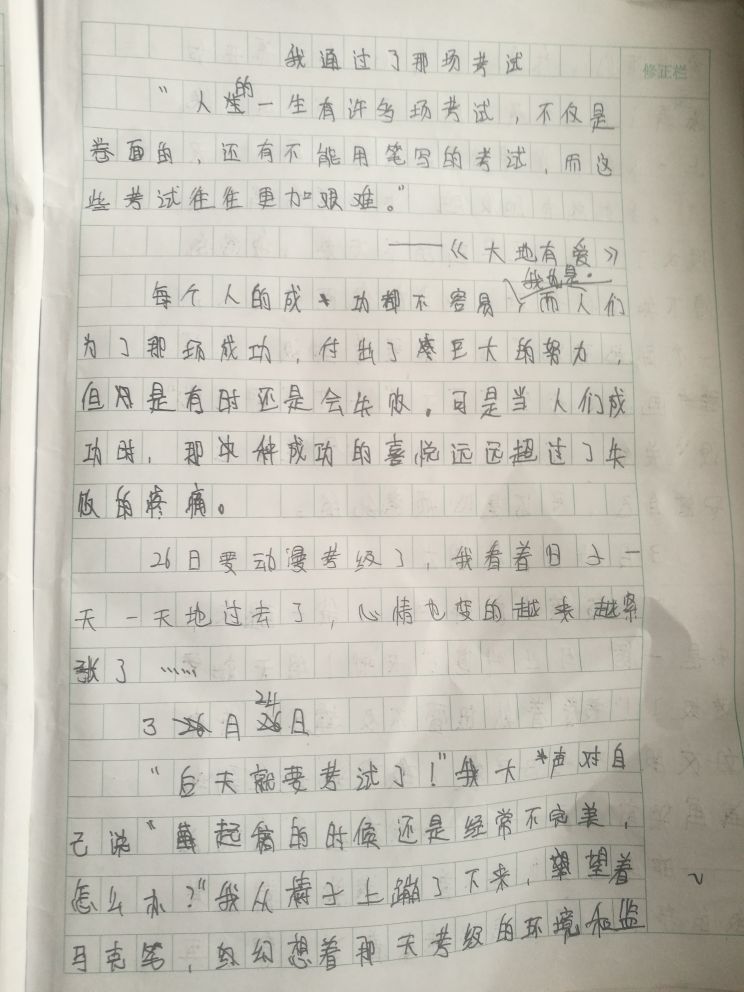 我通过了那场考试
修正栏
"人生的一生有许多场考试，不仅是
卷面的，还有不能用笔写的考试，而这
些考试往往更加艰难。"
——《大地有爱》
我也是。
每个人的成功都不容易，而人们
为了那场成功，付出了巨大的努力，
但是有时还是会失败。可是当人们成
功时，那种成功的喜悦远远超过了失
败的疼痛。
26日要动漫考级了，我看着日子一
天一天地过去了，心情也变的越来越紧
张了……
3月24日
"后天就要考试了！"我大声对自
己说"起稿的时候还是经常不完美，
怎么办？"我从椅子上蹦了下来，望着
马克笔，幻想着那天考级的环境和监